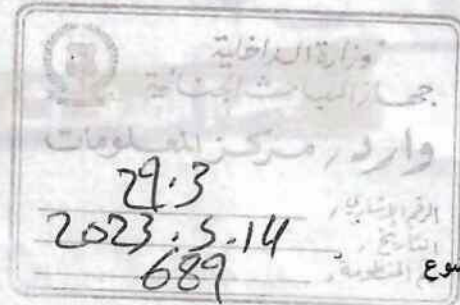 وزارة الداخلية
جهاز المباحث الجنائية
وارد مركز المعلومات
الرقم الإشاري 29.3
التاريخ 2023.5.14
المنظومة 689